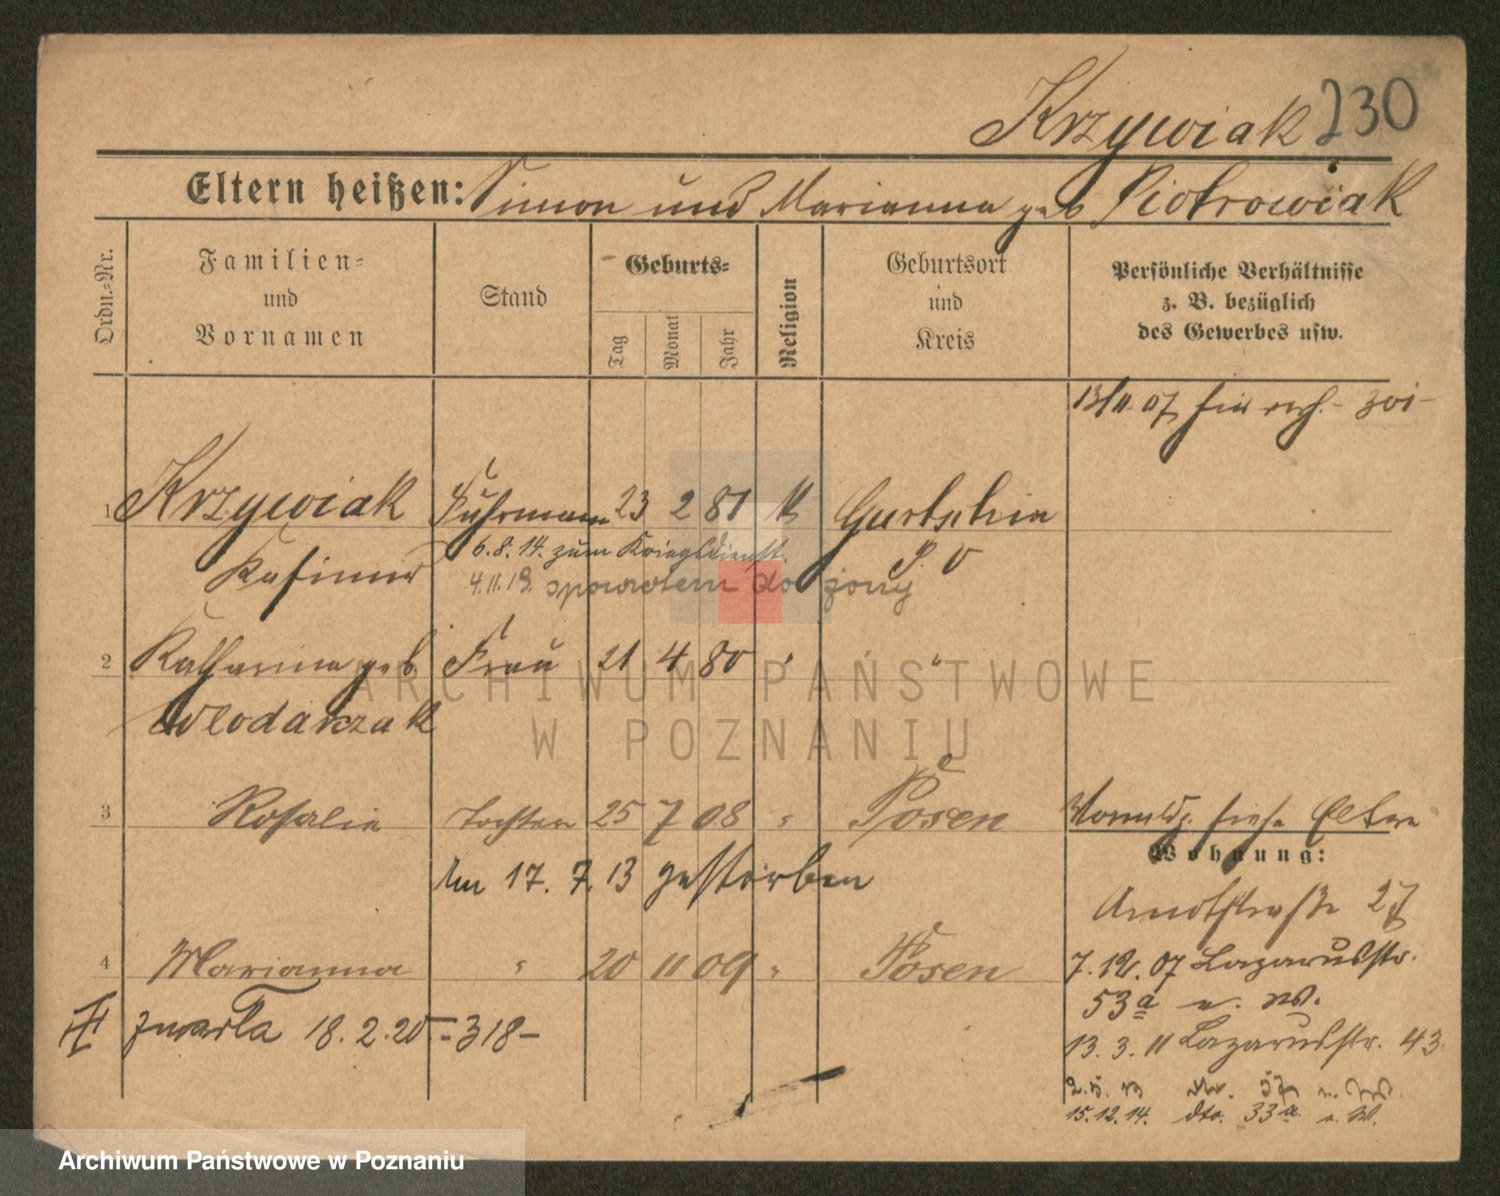 Krzywiak 230
Eltern heißen: Simon und Marianna geb Piotrowiak
Ordn.-Nr.
Familien-
und
Vornamen
Stand
Geburts-
Tag
Monat
Jahr
Religion
Geburtsort
und
Kreis
Persönliche Verhältnisse
z. B. bezüglich
des Gewerbes usw.
13/11. 07
1 Krzywiak Fuhrmann 23 2 81 k Gurtschin
Kasimir 6.8.14. zum Kriegsdienst. P. O
4.11.18. spowrotem do żony
2 Katharina geb Frau 21 4 80 "
Wlodarczak
3 Rosalie Tochter 25 7 08 " Posen siehe Eltern
Wohnung:
Am 17. 7. 13 gestorben
Arndtstraße 27
4 Marianna " 20 11 09 " Posen
7. 12. 07 Lazarusstr.
53a n. W.
III zmarła 18. 2. 20 - 318 -
13. 3. 11 Lazarusstr. 43.
15.12.14. dto. 33a n. W.
ARCHIWUM PAŃSTWOWE
W POZNANIU
Archiwum Państwowe w Poznaniu